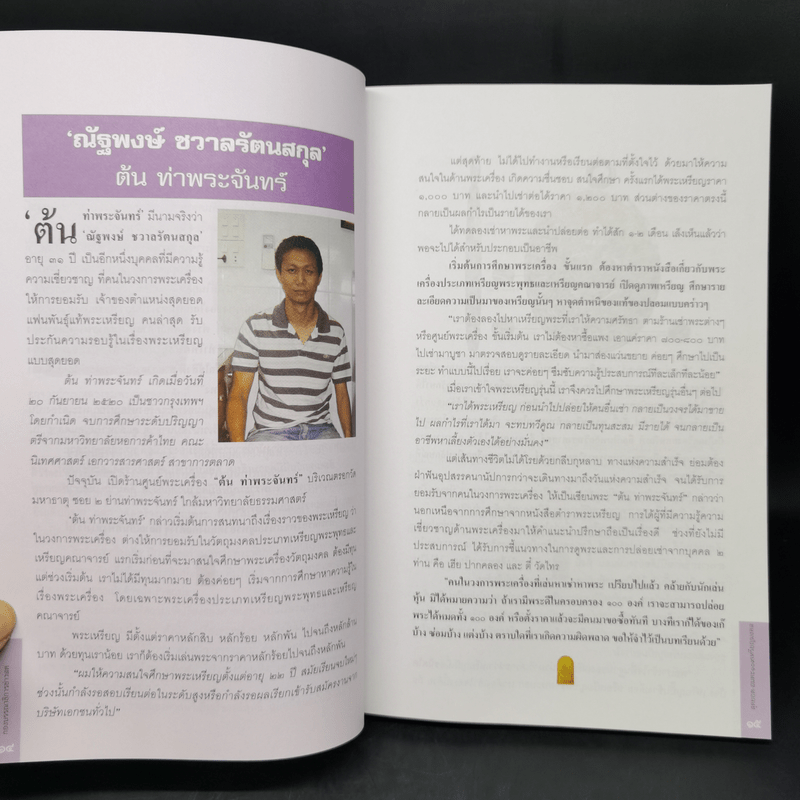 'ณัฐพงษ์ ชวาลรัตนสกุล'
ต้น ท่าพระจันทร์
'ต้น ท่าพระจันทร์' มีนามจริงว่า
'ณัฐพงษ์ ชวาลรัตนสกุล'
อายุ ๓๑ ปี เป็นอีกหนึ่งบุคคลที่มีความรู้
ความเชี่ยวชาญ ที่คนในวงการพระเครื่อง
ให้การยอมรับ เจ้าของตำแหน่งสุดยอด
แฟนพันธุ์แท้พระเหรียญ คนล่าสุด รับ
ประกันความรอบรู้ในเรื่องพระเหรียญ
แบบสุดยอด
ต้น ท่าพระจันทร์ เกิดเมื่อวันที่
๒๐ กันยายน ๒๕๒๐ เป็นชาวกรุงเทพฯ
โดยกำเนิด จบการศึกษาระดับปริญญา
ตรีจากมหาวิทยาลัยหอการค้าไทย คณะ
นิเทศศาสตร์ เอกวารสารศาสตร์ สาขาการตลาด
ปัจจุบัน เปิดร้านศูนย์พระเครื่อง "ต้น ท่าพระจันทร์" บริเวณตรอกวัด
มหาธาตุ ซอย ๒ ย่านท่าพระจันทร์ ใกล้มหาวิทยาลัยธรรมศาสตร์
'ต้น ท่าพระจันทร์' กล่าวเริ่มต้นการสนทนาถึงเรื่องราวของพระเหรียญ ว่า
ในวงการพระเครื่อง ต่างให้การยอมรับในวัตถุมงคลประเภทเหรียญพระพุทธและ
เหรียญคณาจารย์ แรกเริ่มก่อนที่จะมาสนใจศึกษาพระเครื่องวัตถุมงคล ต้องมีทุน
แต่ช่วงเริ่มต้น เราไม่ได้มีทุนมากมาย ต้องค่อยๆ เริ่มจากการศึกษาหาความรู้
เรื่องพระเครื่อง โดยเฉพาะพระเครื่องประเภทเหรียญพระพุทธและเหรียญ
คณาจารย์
พระเหรียญ มีตั้งแต่ราคาหลักสิบ หลักร้อย หลักพัน ไปจนถึงหลักล้าน
บาท ด้วยทุนเราน้อย เราก็ต้องเริ่มเล่นพระจากราคาหลักร้อยไปจนถึงหลักพัน
"ผมให้ความสนใจศึกษาพระเหรียญตั้งแต่อายุ ๒๒ ปี สมัยเรียนจบใหม่ๆ
ช่วงนั้นกำลังรอสอบเรียนต่อในระดับสูงหรือกำลังรอผลเรียกเข้ารับสมัครงานจาก
บริษัทเอกชนทั่วไป"
แต่สุดท้าย ไม่ได้ไปทำงานหรือเรียนต่อตามที่ตั้งใจไว้ ด้วยมาให้ความ
สนใจในด้านพระเครื่อง เกิดความชื่นชอบ สนใจศึกษา ครั้งแรกได้พระเหรียญราคา
๑,๐๐๐ บาท และนำไปเช่าต่อได้ราคา ๑,๒๐๐ บาท ส่วนต่างของราคาตรงนี้
กลายเป็นผลกำไรเป็นรายได้ของเรา
ได้ทดลองเช่าหาพระและนำปล่อยต่อ ทำได้สัก ๑-๒ เดือน เล็งเห็นแล้วว่า
พอจะไปได้สำหรับประกอบเป็นอาชีพ
เริ่มต้นการศึกษาพระเครื่อง ขั้นแรก ต้องหาตำราหนังสือเกี่ยวกับพระ
เครื่องประเภทเหรียญพระพุทธและเหรียญคณาจารย์ เปิดดูภาพเหรียญ ศึกษาราย
ละเอียดความเป็นมาของเหรียญนั้นๆ หาจุดตำหนิของแท้ของปลอมแบบคร่าวๆ
"เราต้องลองไปหาเหรียญพระที่เราให้ความศรัทธา ตามร้านเช่าพระต่างๆ
หรือศูนย์พระเครื่อง ขั้นเริ่มต้น เราไม่ต้องหาซื้อแพง เอาแค่ราคา ๕๐๐-๘๐๐ บาท
ไปเช่ามาบูชา มาตรวจสอบดูรายละเอียด นำมาส่องแว่นขยาย ค่อยๆ ศึกษาไปเป็น
ระยะ ทำแบบนี้ไปเรื่อย เราจะค่อยๆ ซึมซับความรู้ประสบการณ์ทีละเล็กทีละน้อย"
เมื่อเราเข้าใจพระเหรียญรุ่นนี้ เราจึงควรไปศึกษาพระเหรียญรุ่นอื่นๆ ต่อไป
"เราได้พระเหรียญ ก่อนนำไปปล่อยให้คนอื่นเช่า กลายเป็นวงจรได้มาขาย
ไป ผลกำไรที่เราได้มา จะทบทวีคูณ กลายเป็นทุนสะสม มีรายได้ จนกลายเป็น
อาชีพหาเลี้ยงตัวเองได้อย่างมั่นคง"
แต่เส้นทางชีวิตไม่ได้โรยด้วยกลีบกุหลาบ ทางแห่งความสำเร็จ ย่อมต้อง
ฝ่าฟันอุปสรรคนานัปการกว่าจะเดินทางมาถึงวันแห่งความสำเร็จ จนได้รับการ
ยอมรับจากคนในวงการพระเครื่อง ให้เป็นเซียนพระ "ต้น ท่าพระจันทร์" กล่าวว่า
นอกเหนือจากการศึกษาจากหนังสือตำราพระเหรียญ การได้ผู้ที่มีความรู้ความ
เชี่ยวชาญด้านพระเครื่องมาให้คำแนะนำปรึกษาถือเป็นเรื่องดี ช่วงที่ยังไม่มี
ประสบการณ์ ได้รับการชี้แนวทางในการดูพระและการปล่อยเช่าจากบุคคล ๒
ท่าน คือ เฮีย ปากคลอง และ ตี๋ วัดไทร
"คนในวงการพระเครื่องที่เล่นหาเช่าหาพระ เปรียบไปแล้ว คล้ายกับนักเล่น
หุ้น มิได้หมายความว่า ถ้าเรามีพระดีในครอบครอง ๑๐๐ องค์ เราจะสามารถปล่อย
พระได้หมดทั้ง ๑๐๐ องค์ หรือตั้งราคาแล้วจะมีคนมาขอซื้อทันที บางทีเราก็ได้ของเก๊
บ้าง ซ่อมบ้าง แต่งบ้าง ตราบใดที่เราเกิดความผิดพลาด ขอให้จำไว้เป็นบทเรียนด้วย"